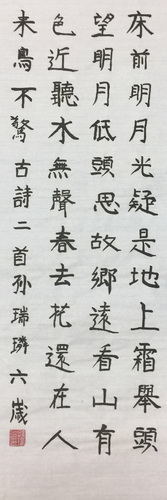 床前明月光疑是地上霜舉頭
望明月低頭思故鄉遠看山有
色近聽水無聲春去花還在人
来鳥不驚古詩二首孫瑞璘六歲